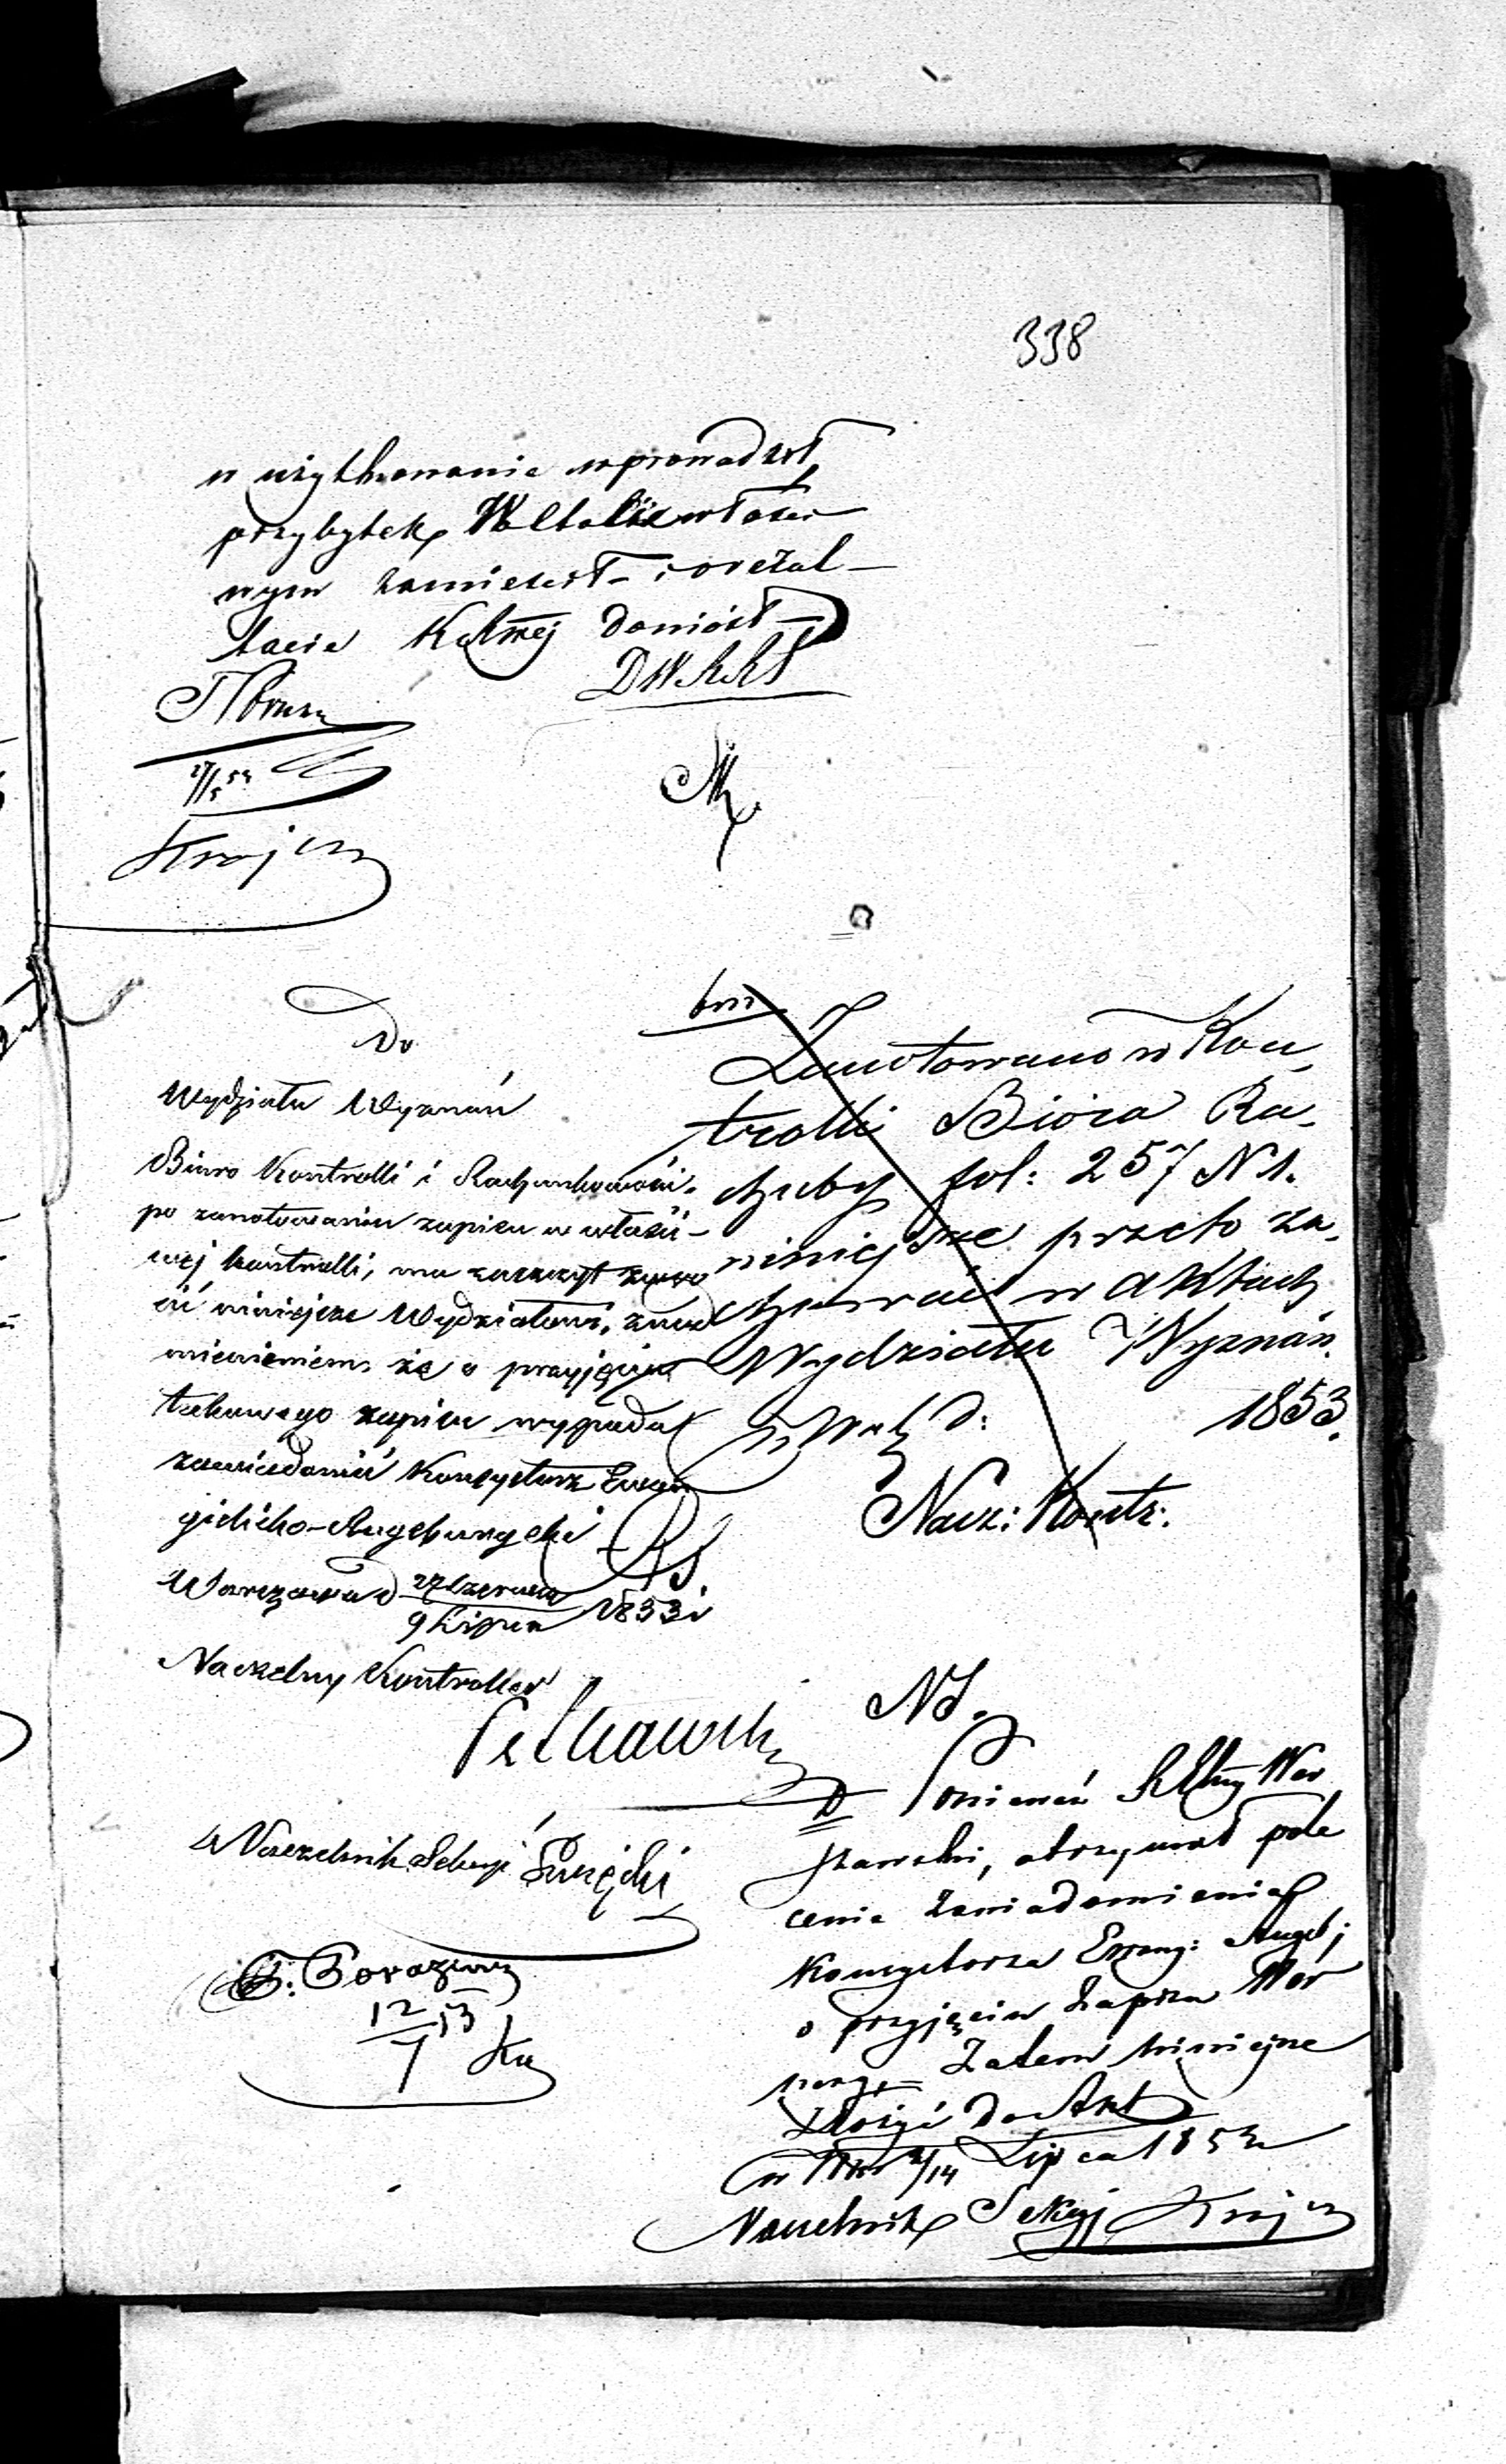 338
w użytkowanie wprowadził
przybytek w Etacie właści
wym zamieścił i o rezul-
tacie K doniósł
DWRKŚ
27/5 53
Krajew
Do
Wydziału Wyznań
Biuro Kontrolli i Rachunkowości.
po zanotowaniu zapisu w właści-
wej kontrolli, ma zaszczyt zwró
cić niniejsze Wydziałowi, z nad
mienieniem że o przyjęciu
takowego zapisu wypada
zawiadomić Konsystorz Ewan
gielicko-Augsburgski
Warszawa d 27 Czerwca / 9 Lipca 1853 r
Naczelny Kontroller
Naczelnik Sekcyi
12/7 53
Zanotowano w Kon
trolli Bióra Ra
chuby fol: 257 N 1.
niniejsze przeto za
chować w aktach
Wydziału Wyznań.
w War d: 1853.
Nacz: Kontr:
NS.
Ponieważ R War
szawski, otrzymał pole
cenie zawiadomienia
Konsystorza Ewang: Augsb:
o przyjęciu zapisu
Zatem niniejsze
złożyć do Akt
w War 2/14 Lipca 1853 r
Naczelnik Sekcyj Krajew